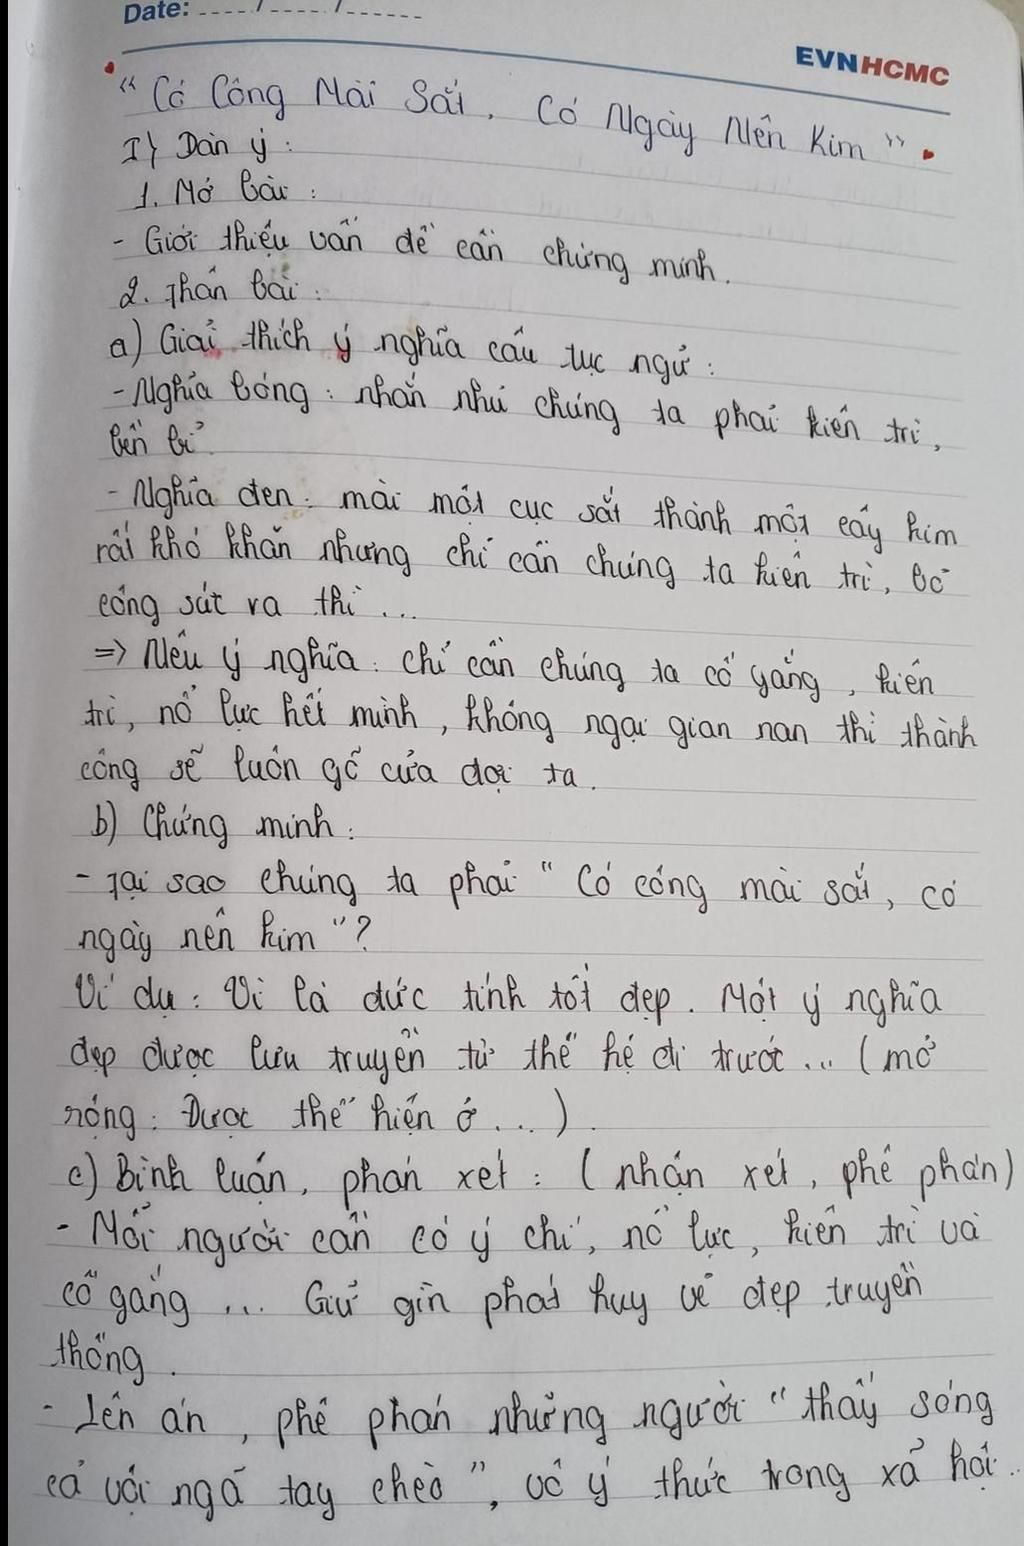 Date: ..../..../......
EVNHCMC
" Có Công Mài Sắt, Có Ngày Nên Kim ".
I} Dàn ý:
1. Mở bài:
- Giới thiệu vấn đề cần chứng minh.
2. Thân bài:
a) Giải thích ý nghĩa câu tục ngữ:
- Nghĩa bóng: nhắn nhủ chúng ta phải kiên trì,
bền bỉ.
- Nghĩa đen: mài một cục sắt thành một cây kim
rất khó khăn nhưng chỉ cần chúng ta kiên trì, bỏ
công sức ra thì ...
=> Nêu ý nghĩa: chỉ cần chúng ta cố gắng, kiên
trì, nổ lực hết mình, không ngại gian nan thì thành
công sẽ luôn gõ cửa đợi ta.
b) Chứng minh:
- Tại sao chúng ta phải " Có công mài sắt, có
ngày nên kim "?
Ví dụ: Vì là đức tính tốt đẹp. Một ý nghĩa
đẹp được lưu truyền từ thế hệ đi trước ... ( mở
rộng: Được thể hiện ở ... ).
c) Bình luận, phán xét: ( nhận xét, phê phán)
- Mỗi người cần có ý chí, nổ lực, kiên trì và
cố gắng ... Giữ gìn phát huy vẻ đẹp truyền
thống.
- Lên án, phê phán những người " thấy sóng
cả vội ngã tay chèo ", vô ý thức trong xã hội.